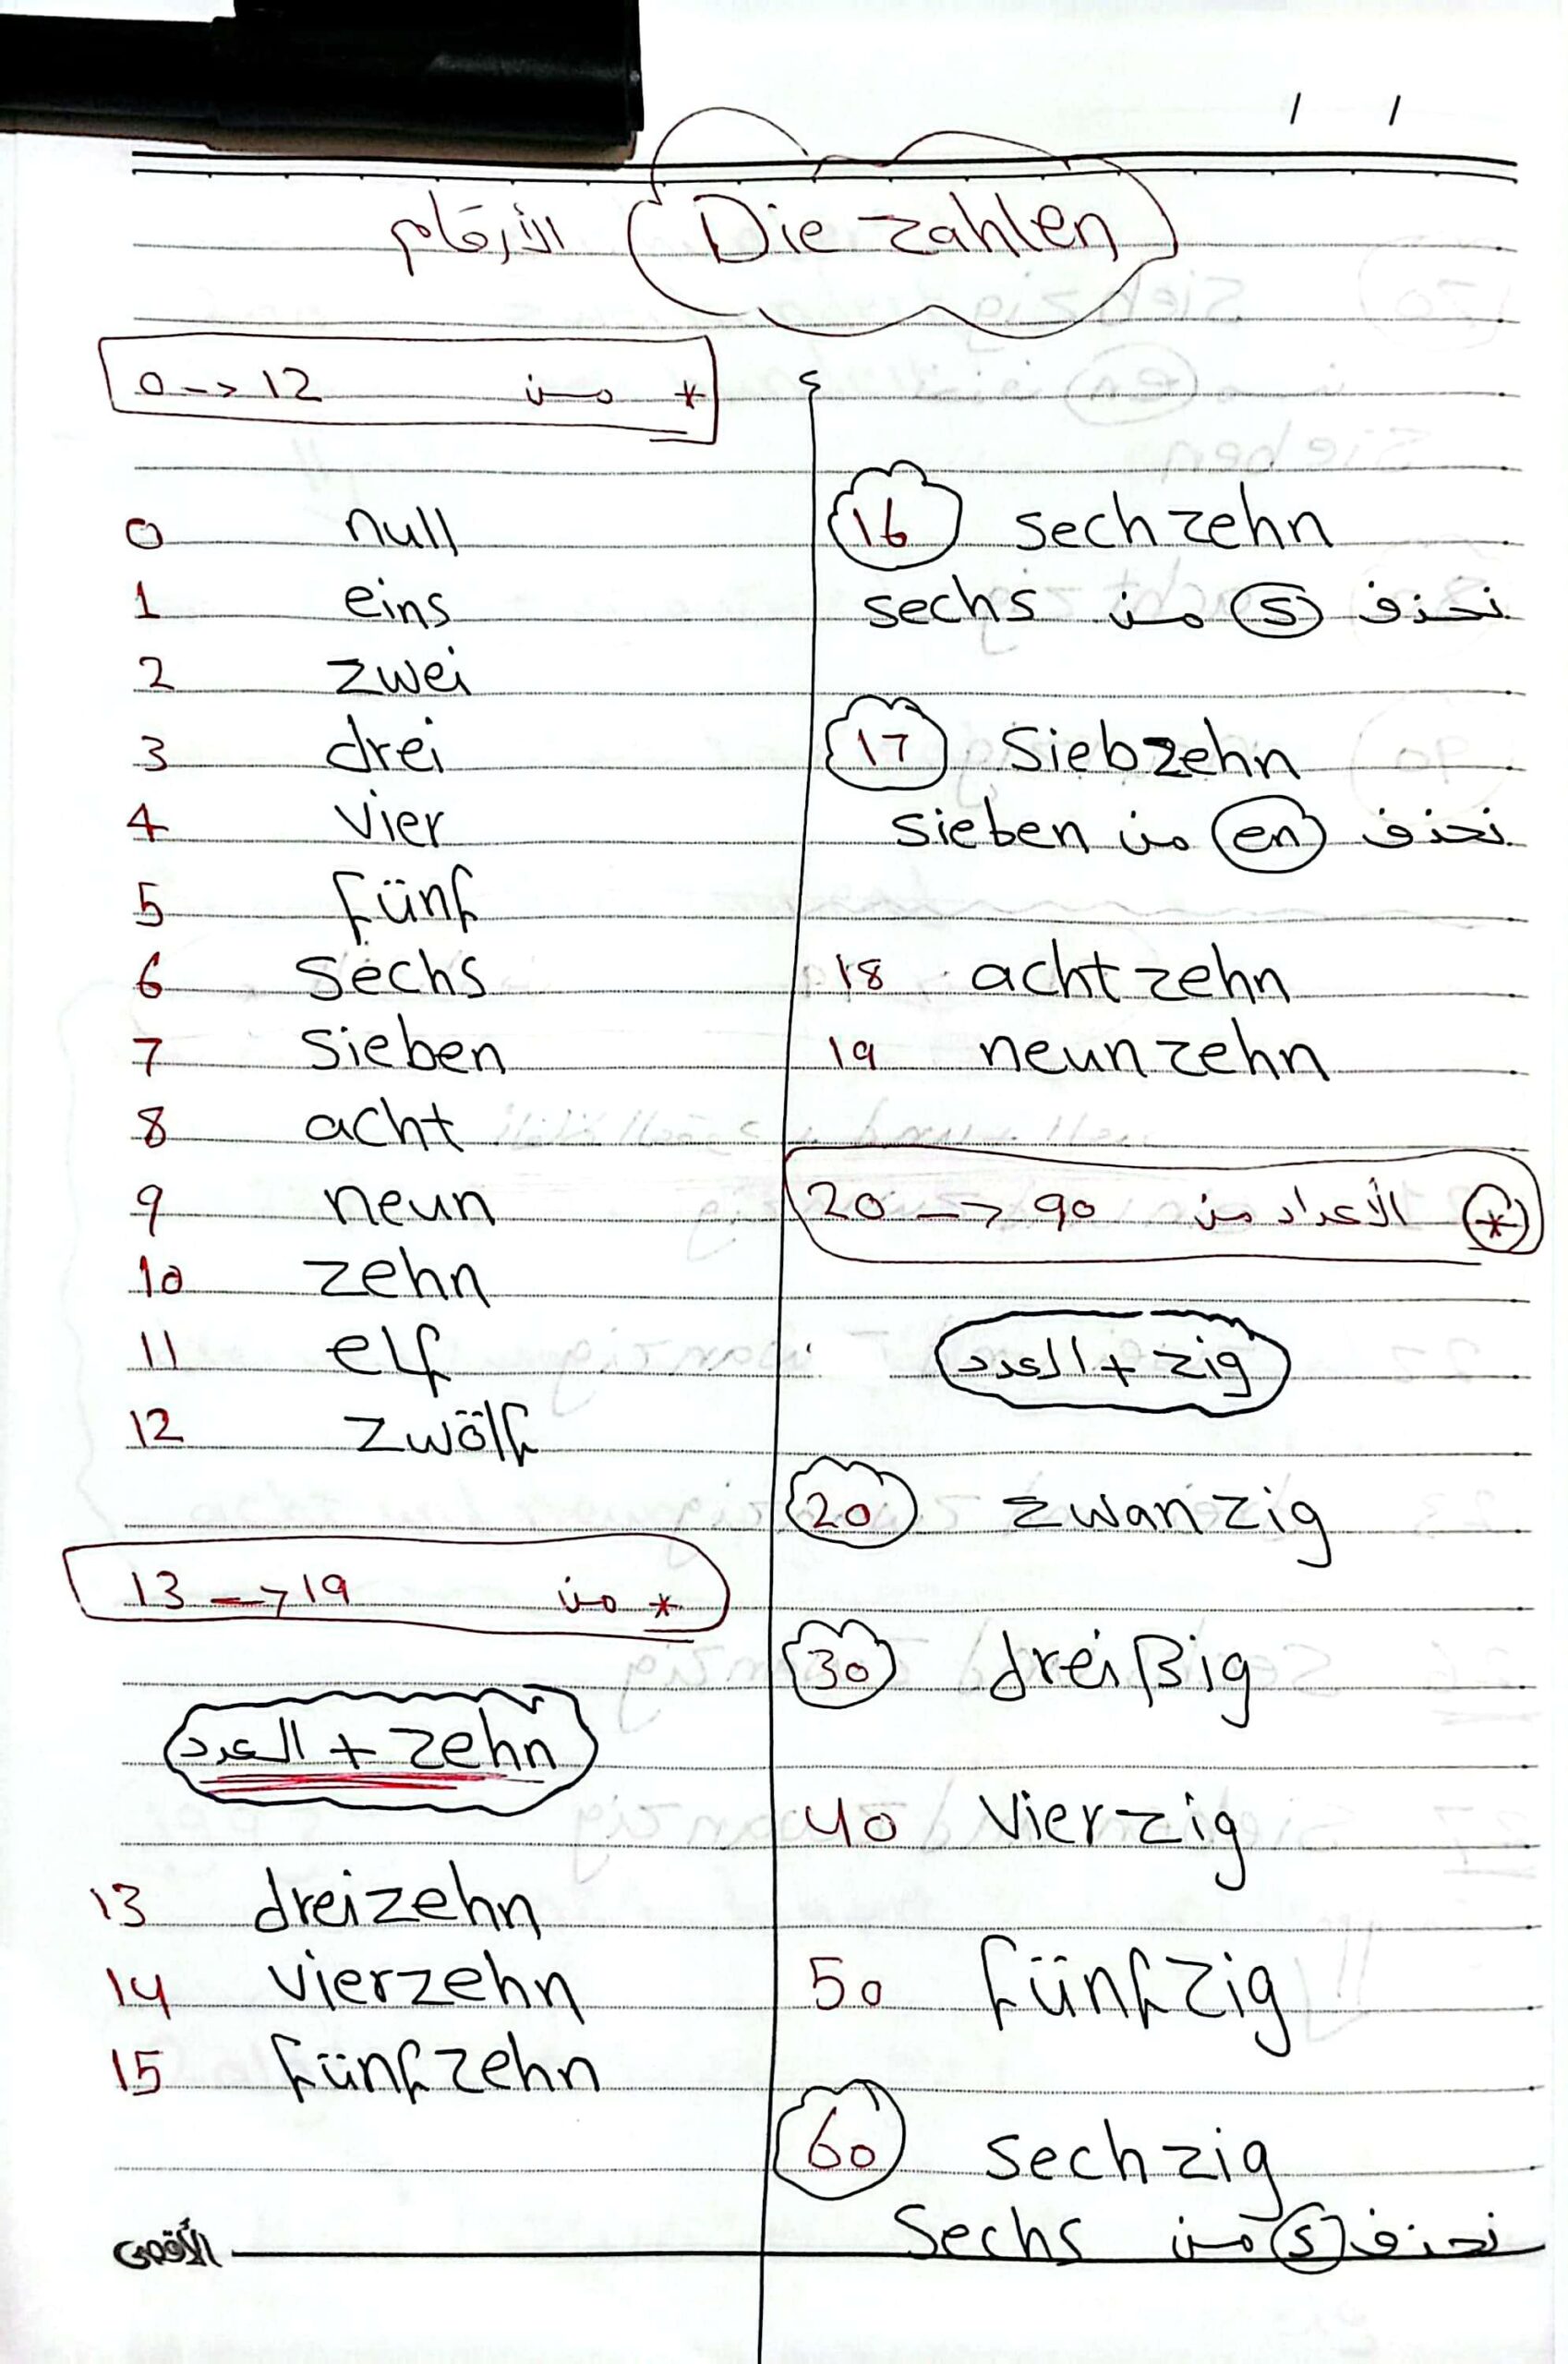 الأرقام Die zahlen
* من 0 -> 12
0 null
1 eins
2 zwei
3 drei
4 vier
5 fünf
6 sechs
7 sieben
8 acht
9 neun
10 zehn
11 elf
12 zwölf
* من 13 -> 19
العدد + zehn
13 dreizehn
14 vierzehn
15 fünfzehn
16 sechzehn
نحذف s من sechs
17 siebzehn
نحذف en من sieben
18 achtzehn
19 neunzehn
* الأعداد من 20 -> 90
العدد + zig
20 zwanzig
30 dreißig
40 vierzig
50 fünfzig
60 sechzig
نحذف s من sechs
الأقصى